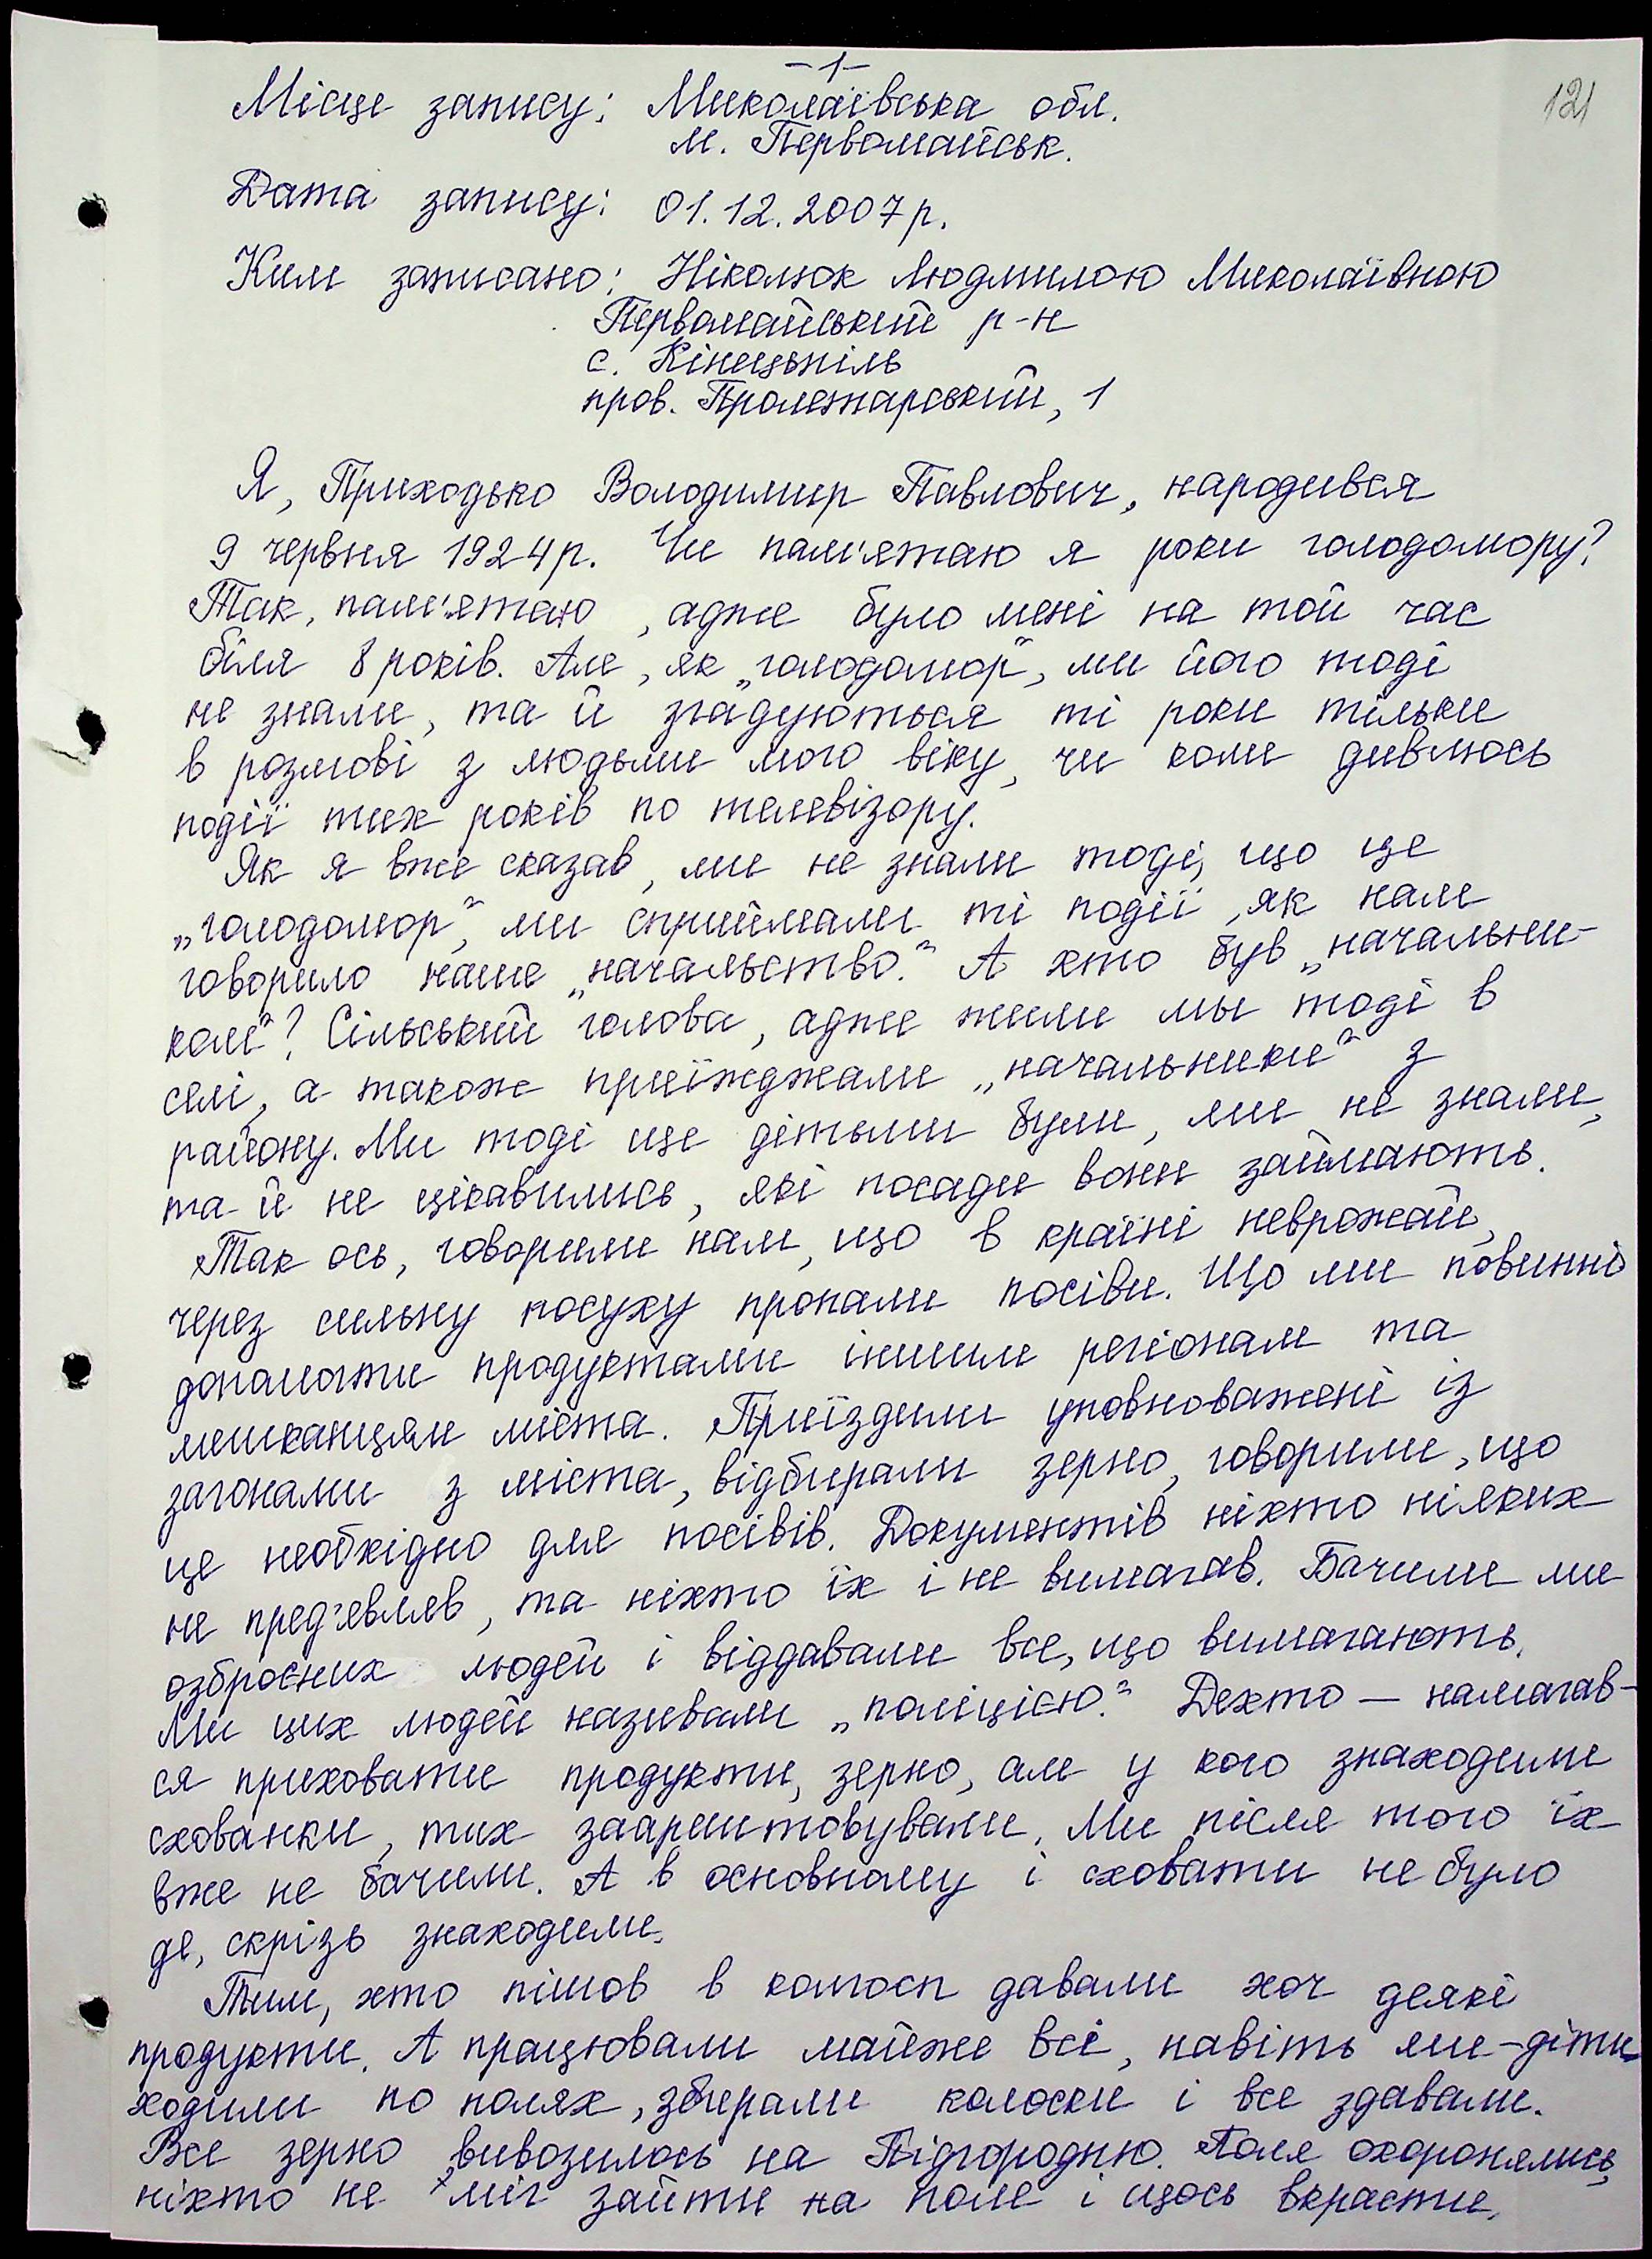 -1-
121
Місце запису: Миколаївська обл.
м. Первомайськ.
Дата запису: 01.12.2007р.
Ким записано: Ніколюк Людмилою Миколаївною
Первомайський р-н
с. Кінецьпіль
пров. Пролетарський, 1
Я, Приходько Володимир Павлович, народився
9 червня 1924р. Чи пам'ятаю я роки голодомору?
Так, пам'ятаю, адже було мені на той час
біля 8 років. Але, як „голодомор", ми його тоді
не знали, та й згадуються ті роки тільки
в розмові з людьми мого віку, чи коли дивлюсь
події тих років по телевізору.
Як я вже сказав, ми не знали тоді, що це
„голодомор", ми сприймали ті події, як нам
говорило наше „начальство." А хто був „начальни-
ком"? Сільський голова, адже жили мы тоді в
селі, а також приїжджали „начальники" з
району. Ми тоді ще дітьми були, ми не знали,
та й не цікавились, які посади вони займають.
Так ось, говорили нам, що в країні неврожай,
через сильну посуху пропали посіви. Що ми повинні
допомогти продуктами іншим регіонам та
мешканцям міста. Приїздили уповноважені із
загонами з міста, відбирали зерно, говорили, що
це необхідно для посівів. Документів ніхто ніяких
не пред'являв, та ніхто їх і не вимагав. Бачили ми
озброєних людей і віддавали все, що вимагають.
Ми цих людей називали „поліцією." Дехто — намагав-
ся приховати продукти, зерно, але у кого знаходили
схованки, тих заарештовували. Ми після того їх
вже не бачили. А в основному і сховати не було
де, скрізь знаходили.
Тим, хто пішов в колгосп давали хоч деякі
продукти. А працювали майже всі, навіть ми-діти
ходили по полях, збирали колоски і все здавали.
Все зерно вивозилось на Підгородню. Поля охоронялись,
ніхто не міг зайти на поле і щось вкрасти.